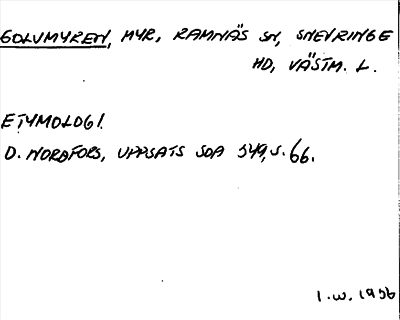 GOLVMYREN, MYR, RAMNÄS SN, SNEVRINGE
HD, VÄSTM. L.
ETYMOLOGI.
D. NORDFORS, UPPSATS SOA 349, S. 66.
I.W. 1956